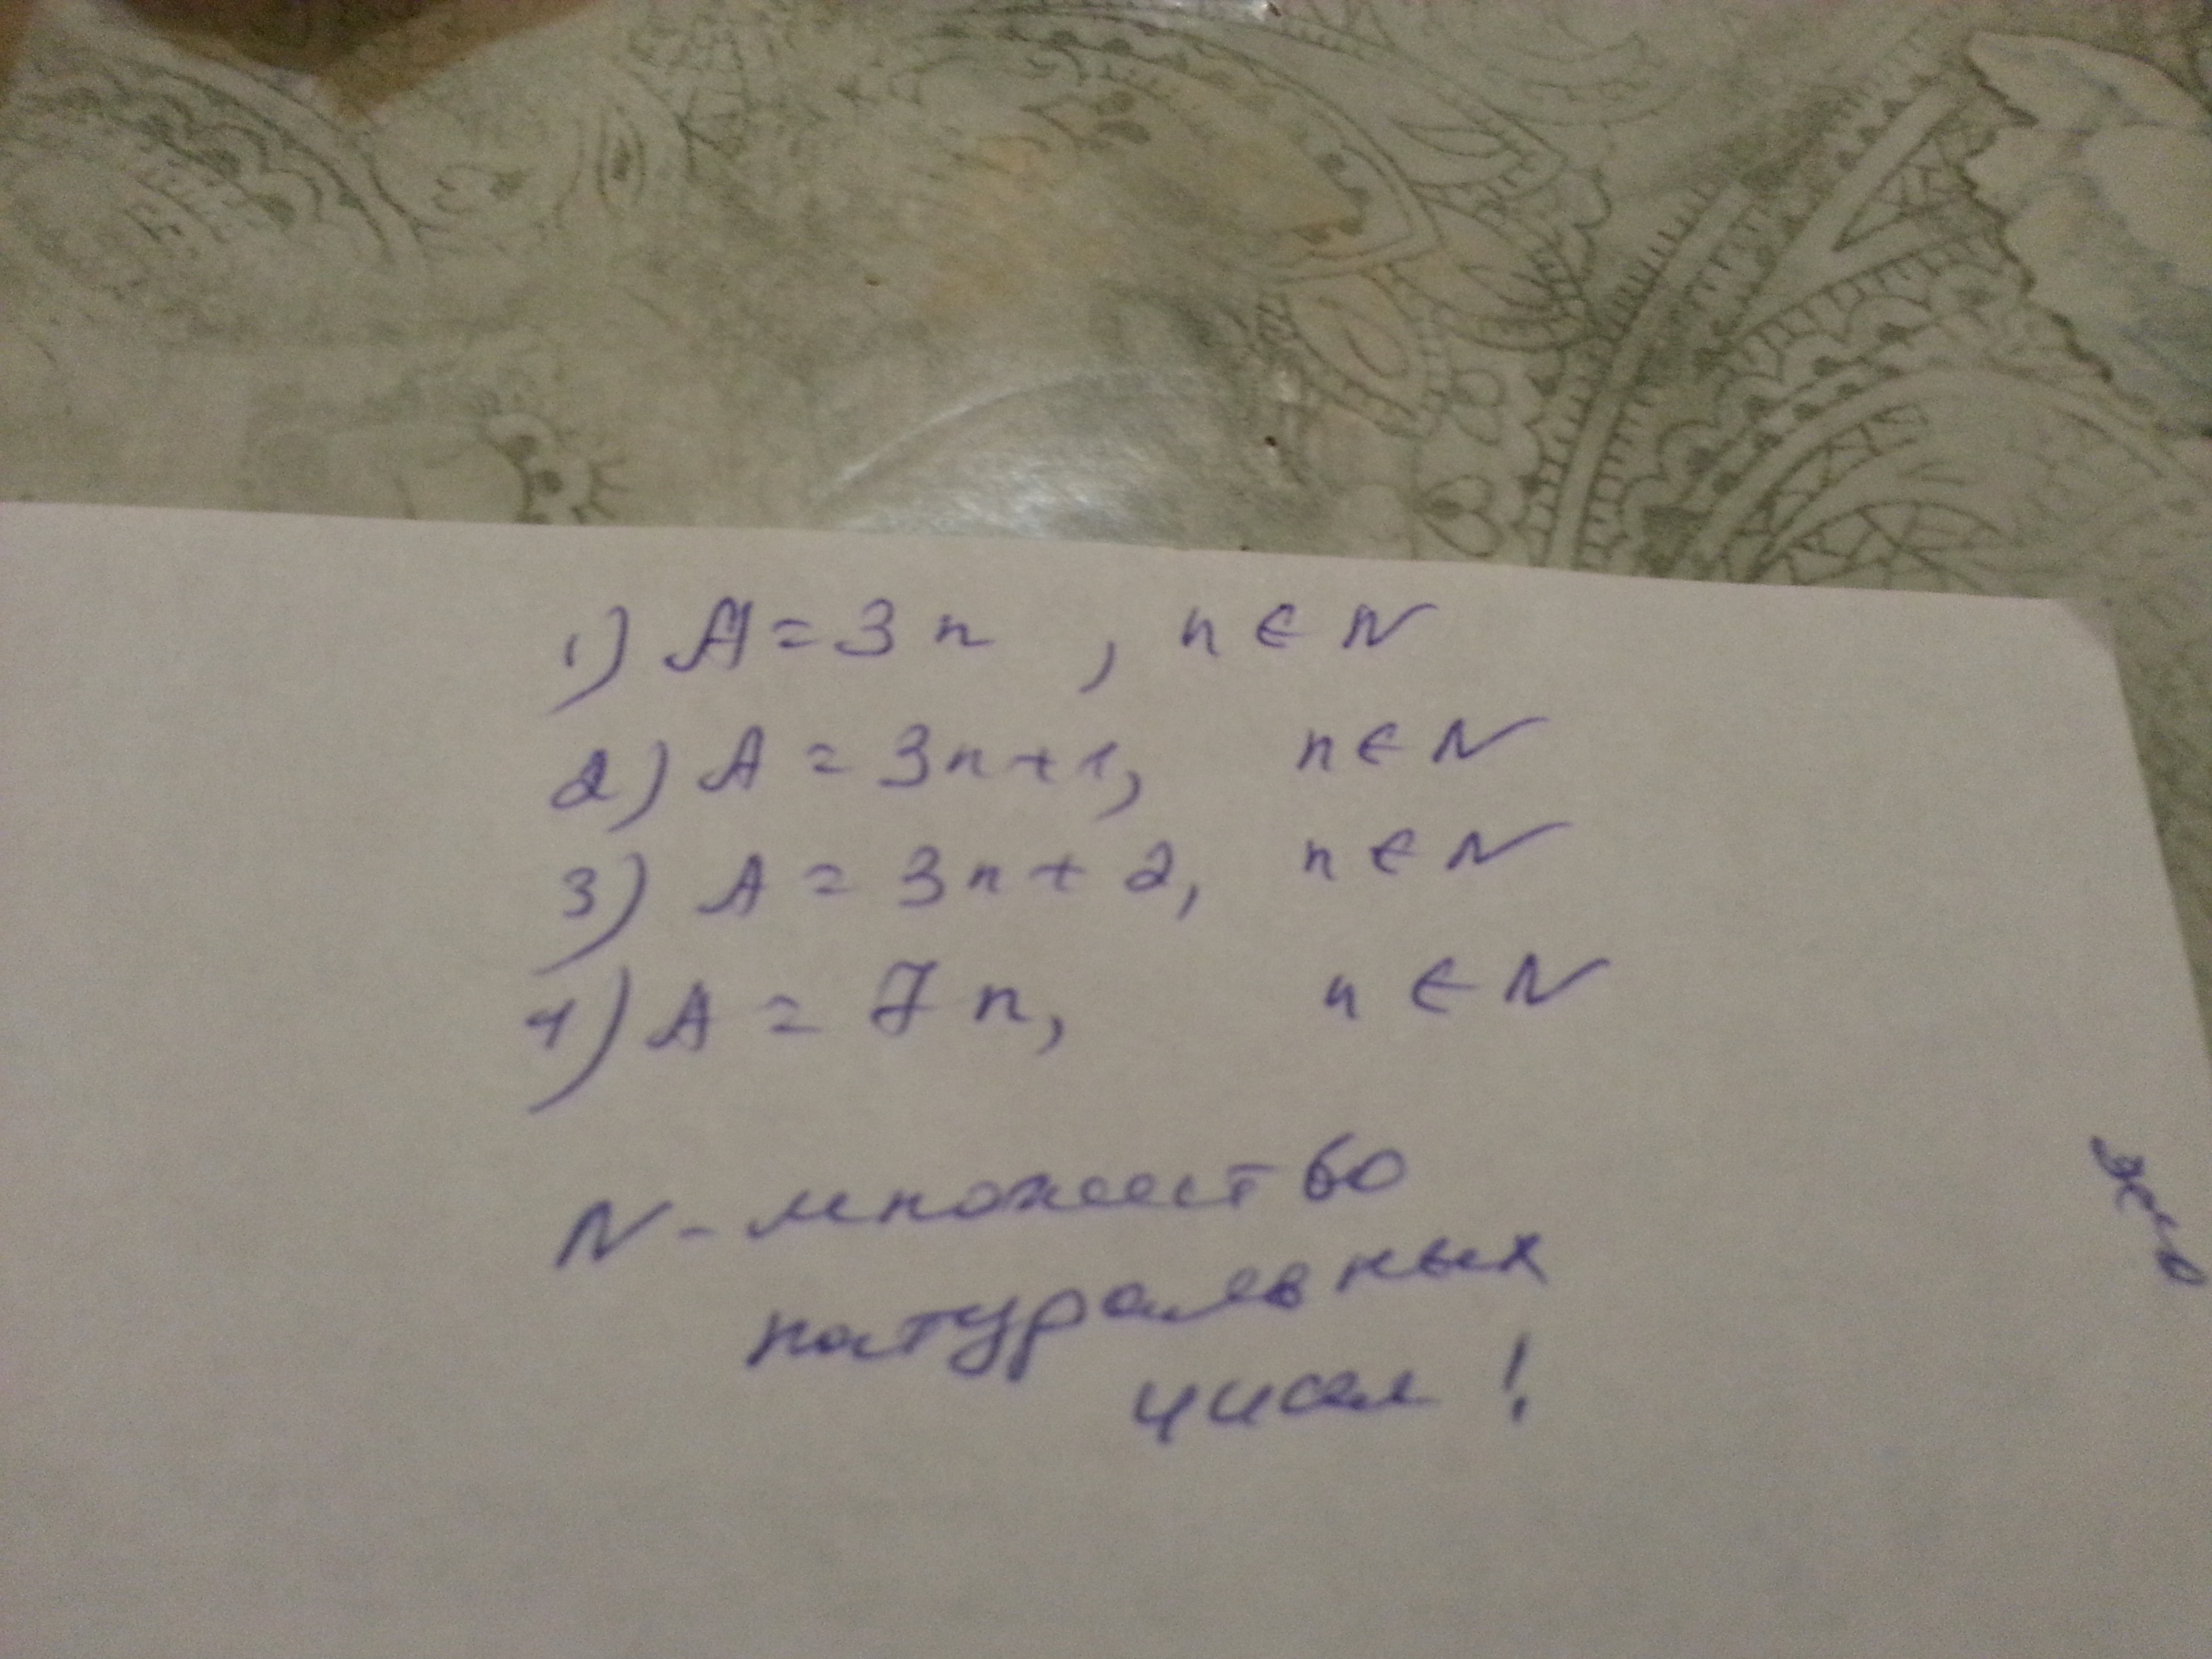 1) A = 3n , n ∈ N
2) A = 3n+1, n ∈ N
3) A = 3n + 2, n ∈ N
4) A = 7n, n ∈ N
N - множество
натуральных
чисел!